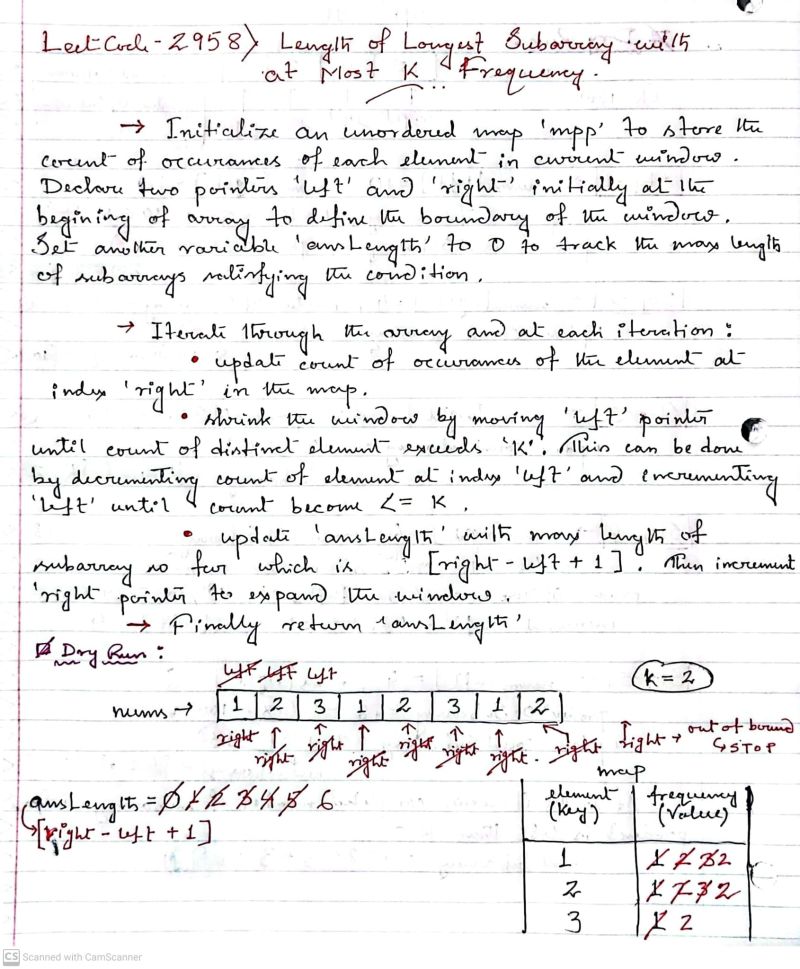 LeetCode-2958) Length of Longest Subarray with
at Most K Frequency.
→ Initialize an unordered map 'mpp' to store the
count of occurances of each element in current window.
Declare two pointers 'left' and 'right' initially at the
begining of array to define the boundary of the window.
Set another variable 'ansLength' to 0 to track the max length
of subarrays satisfying the condition.
→ Iterate through the array and at each iteration:
• update count of occurances of the element at
index 'right' in the map.
• shrink the window by moving 'left' pointer
until count of distinct element exceeds 'K'. This can be done
by decrementing count of element at index 'left' and incrementing
'left' until count become <= K.
• update 'ansLength' with max length of
subarray so far which is [right - left + 1]. Then increment
'right pointer to expand the window.
→ Finally return 'ansLength'
Dry Run:
left left left
k = 2
nums → 1 2 3 1 2 3 1 2
right right right right right right right. right right → out of bound
↳ STOP
map
ansLength = 0 1 2 3 4 5 6
element frequency
(Key) (Value)
[right - left + 1]
1 1 2 3 2
2 1 2 3 2
3 1 2
CS Scanned with CamScanner